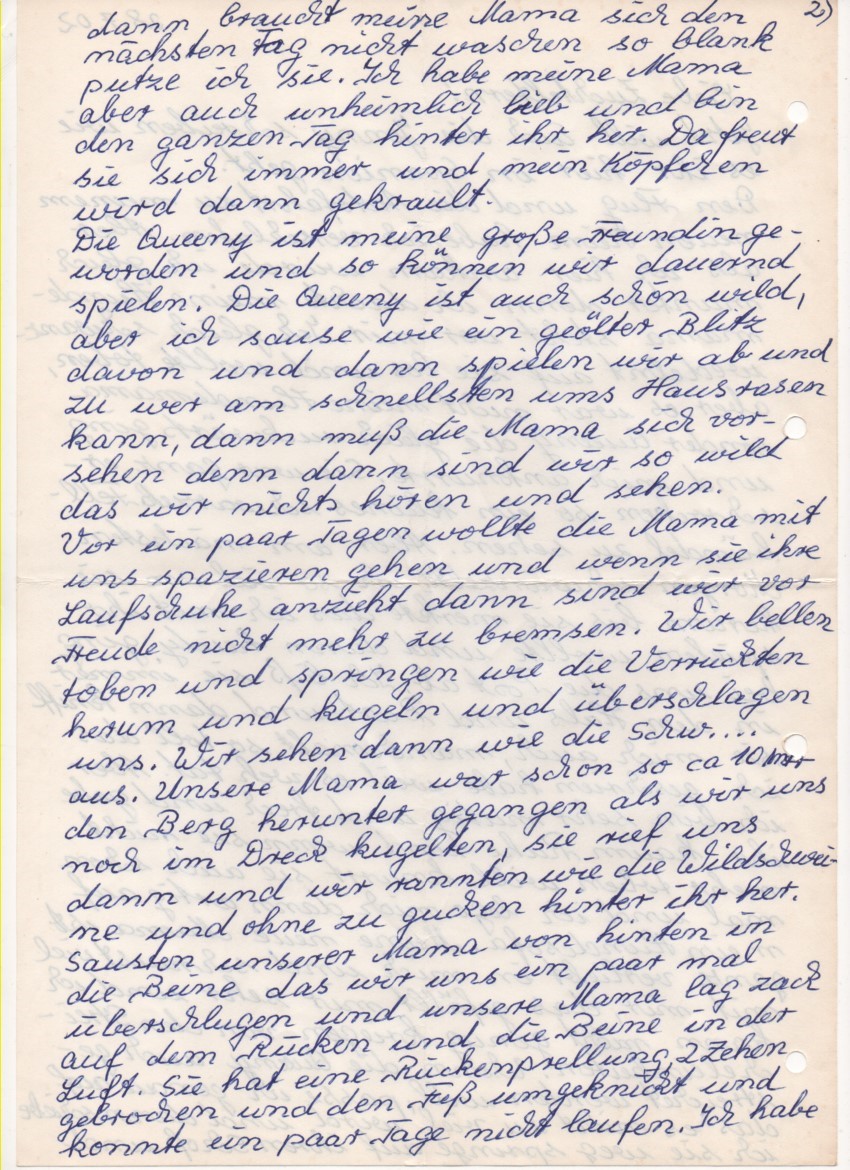 2)
dann braucht meine Mama sich den
nächsten Tag nicht waschen so blank
putze ich sie. Ich habe meine Mama
aber auch unheimlich lieb und bin
den ganzen Tag hinter ihr her. Da freut
sie sich immer und mein Köpfchen
wird dann gekrault.
Die Queeny ist meine große Freundin ge-
worden und so können wir dauernd
spielen. Die Queeny ist auch schön wild,
aber ich sause wie ein geölter Blitz
davon und dann spielen wir ab und
zu wer am schnellsten ums Haus rasen
kann, dann muß die Mama sich vor-
sehen denn dann sind wir so wild
das wir nichts hören und sehen.
Vor ein paar Tagen wollte die Mama mit
uns spazieren gehen und wenn sie ihre
Laufschuhe anzieht dann sind wir vor
Freude nicht mehr zu bremsen. Wir bellen
toben und springen wie die Verrückten
herum und kugeln und überschlagen
uns. Wir sehen dann wie die Schw....
aus. Unsere Mama war schon so ca 10 mtr
den Berg herunter gegangen als wir uns
noch im Dreck kugelten, sie rief uns
dann und wir rannten wie die Wildschwei-
ne und ohne zu gucken hinter ihr her.
Sausten unserer Mama von hinten in
die Beine das wir uns ein paar mal
überschlugen und unsere Mama lag zack
auf dem Rücken und die Beine in der
Luft. Sie hat eine Rückenprellung, 2 Zehen
gebrochen und den Fuß umgeknickt und
konnte ein paar Tage nicht laufen. Ich habe